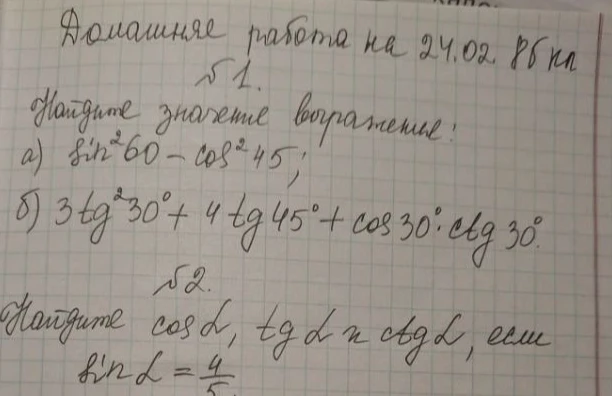 Домашняя работа на 24.02 8б кл
№1.
Найдите значение выражение:
а) sin²60 − cos²45;
б) 3tg²30° + 4tg45° + cos30°·ctg30°.
№2.
Найдите cosα, tgα и ctgα, если
sinα = 4/5.